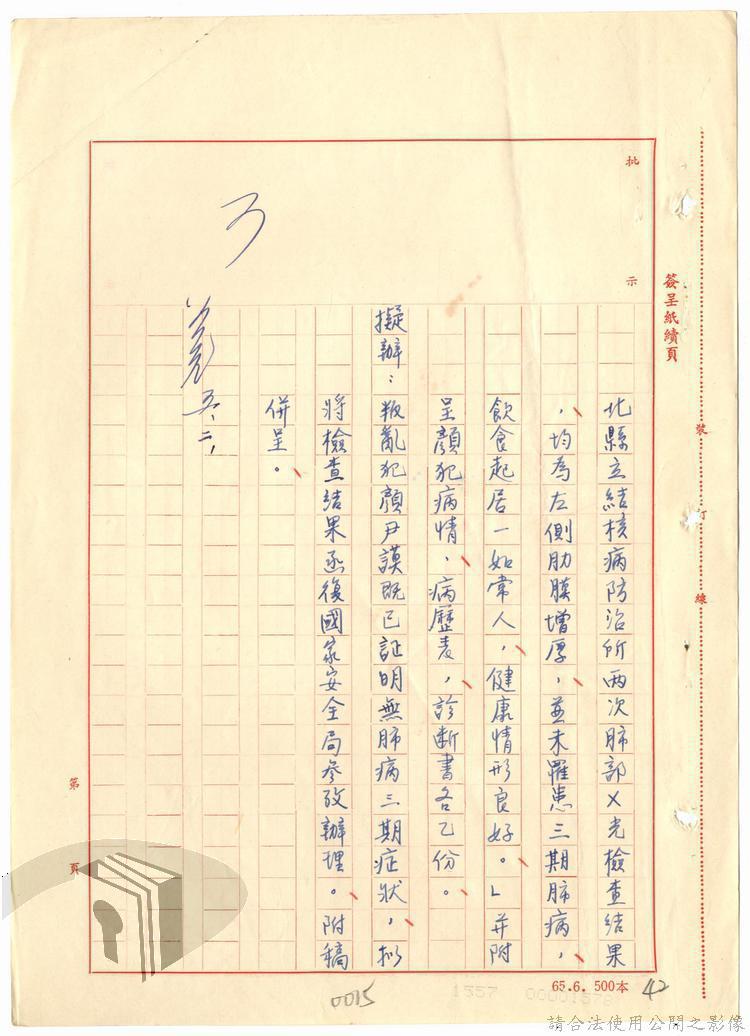 簽呈紙續頁
批示
裝
訂
線
北縣立結核病防治所兩次肺部X光檢查結果
,均為左側肋膜增厚,並未罹患三期肺病,
飲食起居一如常人,健康情形良好。」并附
呈顏犯病情、病歷表,診斷書各乙份。
擬辦:叛亂犯顏尹謨既已証明無肺病三期症狀,擬
將檢查結果函復國家安全局參攷辦理。附稿
併呈。
五、二、
第 頁
65.6. 500本
42
0015
1557 00001578
請合法使用公開之影像